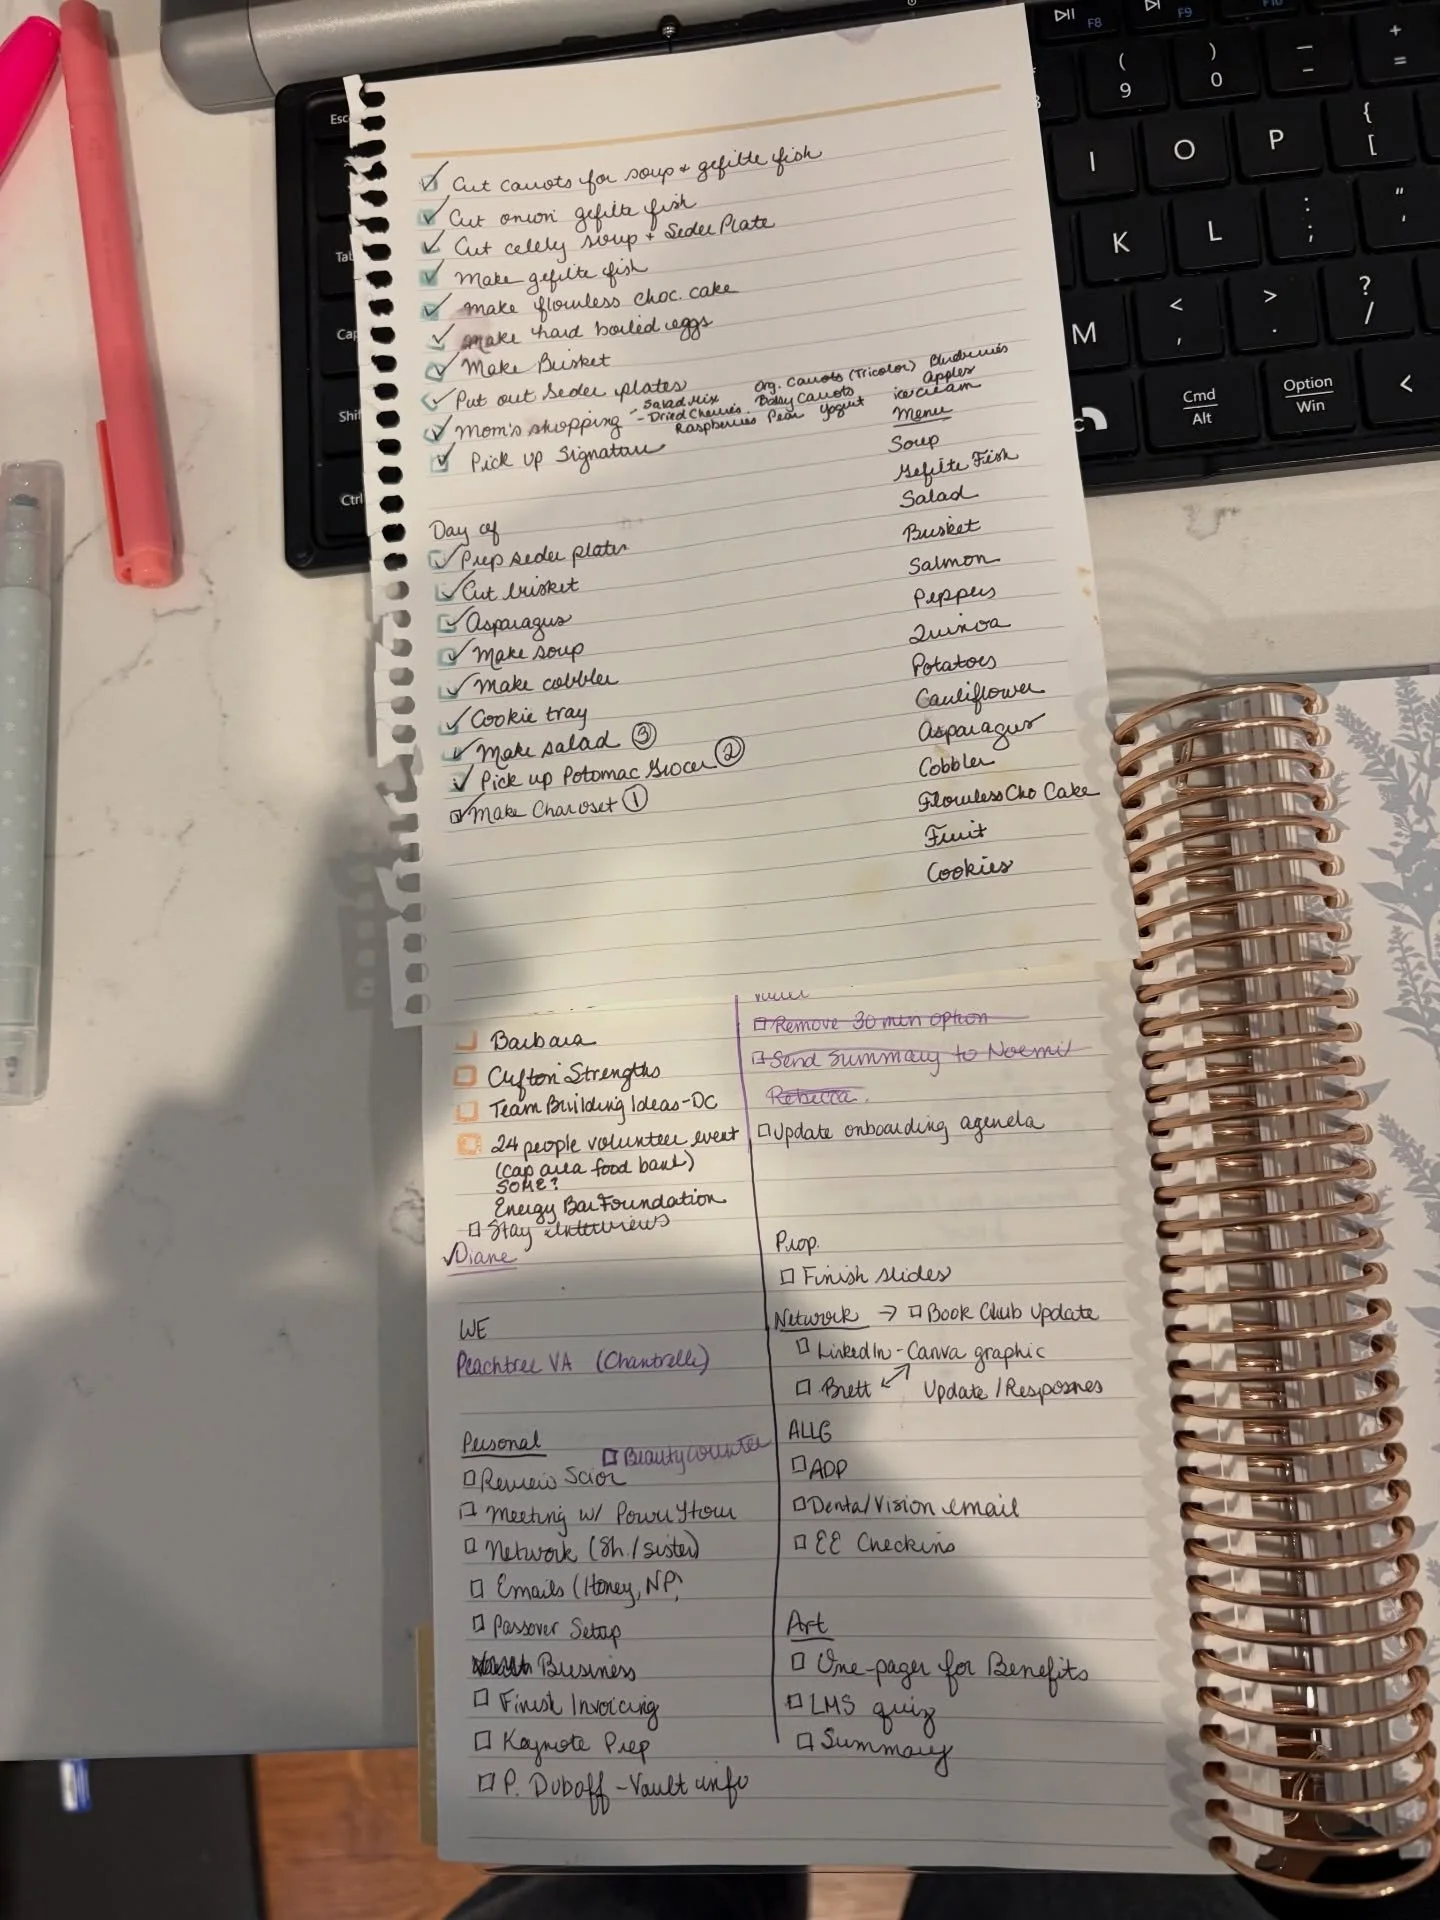 Cut carrots for soup + gefilte fish
Cut onion gefilte fish
Cut celely soup + Seder Plate
Make gefilte fish
Make flowless choc. cake
Make hard boiled eggs
Make Brisket
Put out Seder plates
Mom's shopping - Salad Mix Org. Carrots (Tricolor) Blueberries
- Dried Cherries Baby Carrots Apples
Raspberries Pear Yogurt ice cream
Pick up Signature
Menu
Soup
Gefilte Fish
Salad
Brisket
Salmon
Peppers
Quinoa
Potatoes
Cauliflower
Asparagus
Cobbler
Flowless Cho Cake
Fruit
Cookies
Day of
Prep seder plates
Cut brisket
Asparagus
Make soup
Make cobbler
Cookie tray
Make salad ③
Pick up Potomac Grocer ②
Make Charoset ①
Barbara
Clifton Strengths
Team Building Ideas-DC
24 people volunteer event
(cap area food bank)
SOME?
Energy Bar Foundation
Stay interviews
Diane
WE
Peachtree VA (Chantrelle)
Personal
Beautycounter
Review Scior
Meeting w/ Power Hour
Network (Sh./sister)
Emails (Honey, NP,
Passover Setup
Business
Finish Invoicing
Keynote Prep
P. Duboff - Vault info
Remove 30 min option
Send Summary to Noemi
Rebecca.
Update onboarding agenda
Prop.
Finish slides
Network → Book Club Update
LinkedIn - Canva graphic
Brett Update / Resposnes
ALLG
ADP
Dental/Vision email
EE Checkins
Art
One-pager for Benefits
LMS quiz
Summary
Esc
Tab
Cap
Shif
Ctrl
F8
F9
F10
( 9
) 0
— -
+ =
I
O
P
{ [
K
L
: ;
" '
M
< ,
> .
? /
Cmd
Alt
Option
Win
<